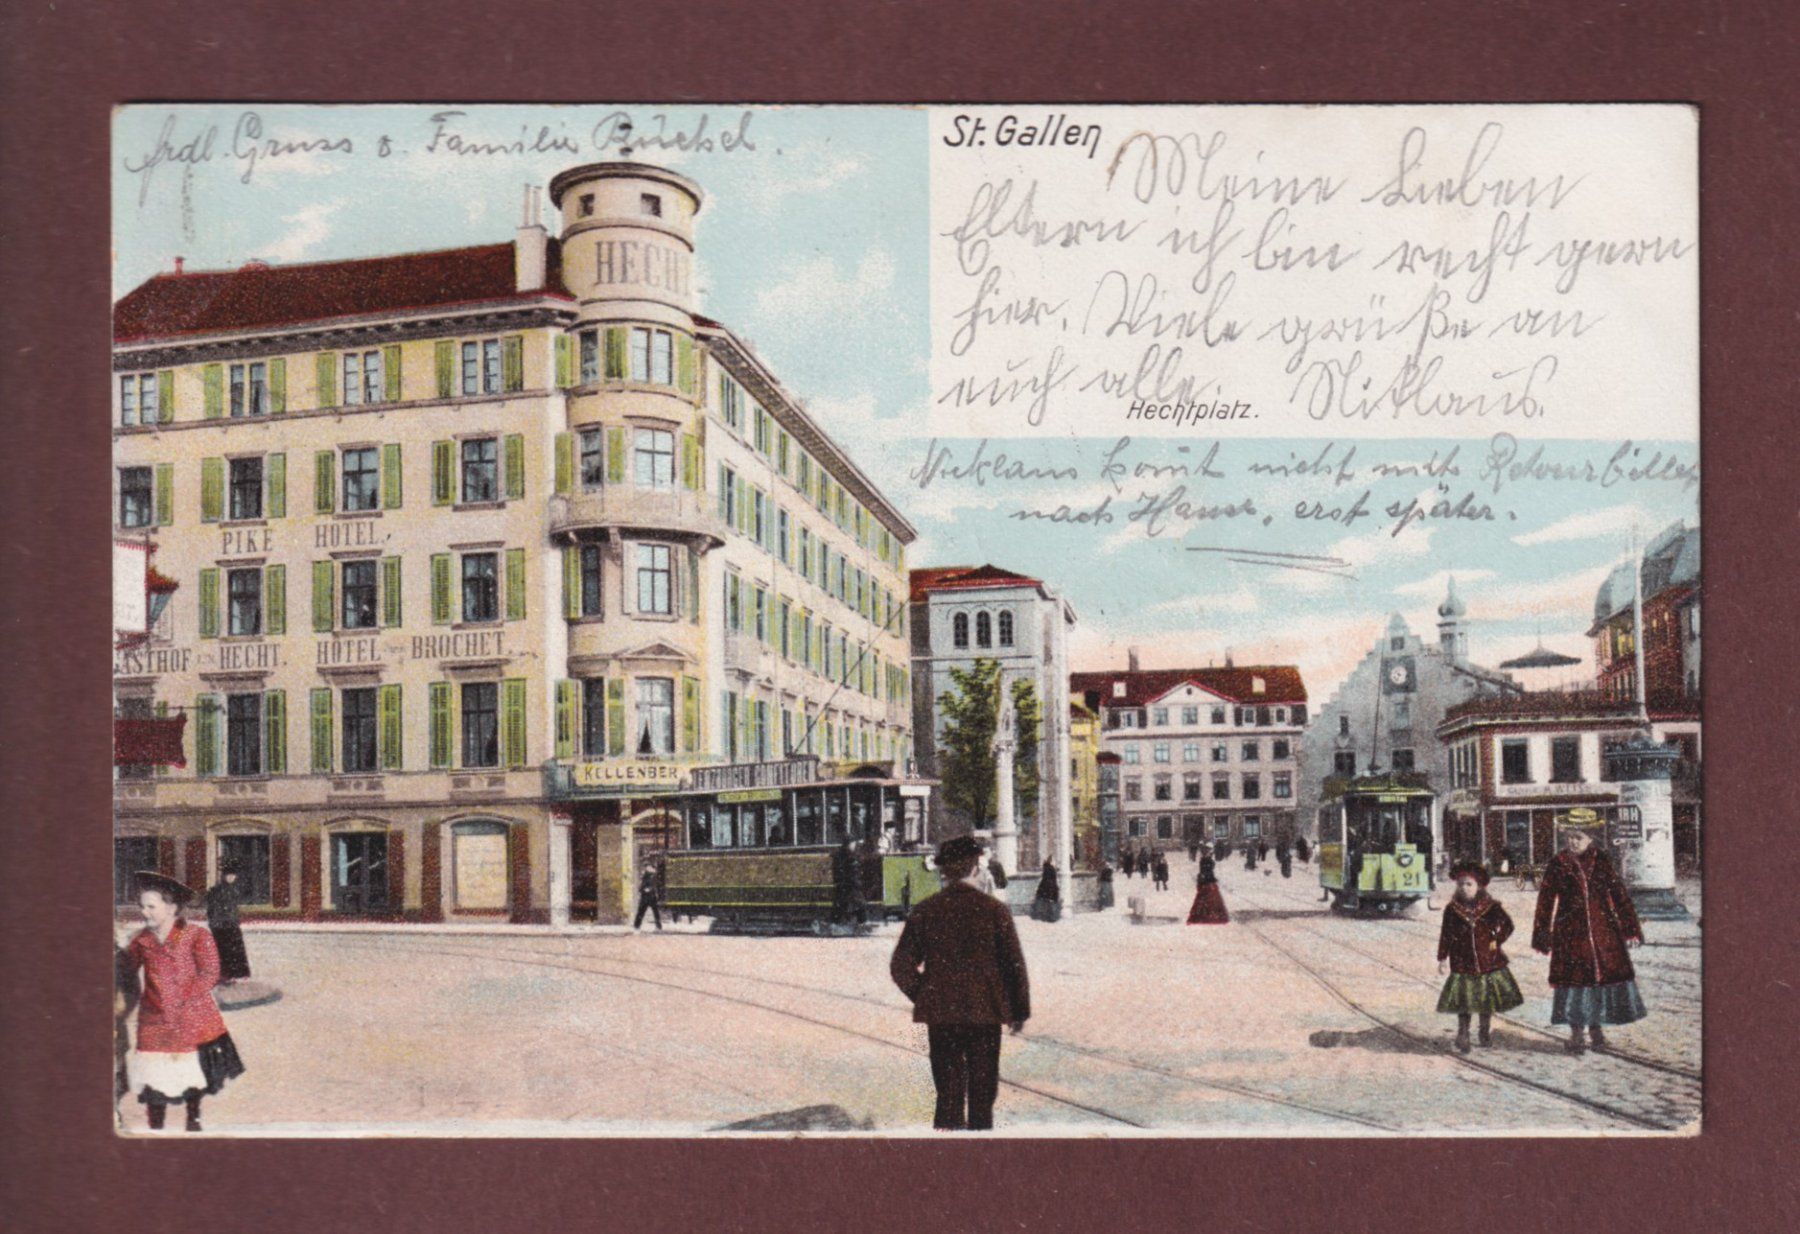 frdl. Gruss v. Familie Büchel.
St. Gallen
Meine Lieben
Eltern ich bin recht gern
hier. Viele grüße an
euch alle. Niklaus.
Hechtplatz.
Nicklaus komt nicht mit Retourbillet
nach Hause, erst später.
HECHT
PIKE HOTEL,
GASTHOF ZUM HECHT. HOTEL DU BROCHET.
KELLENBER
21